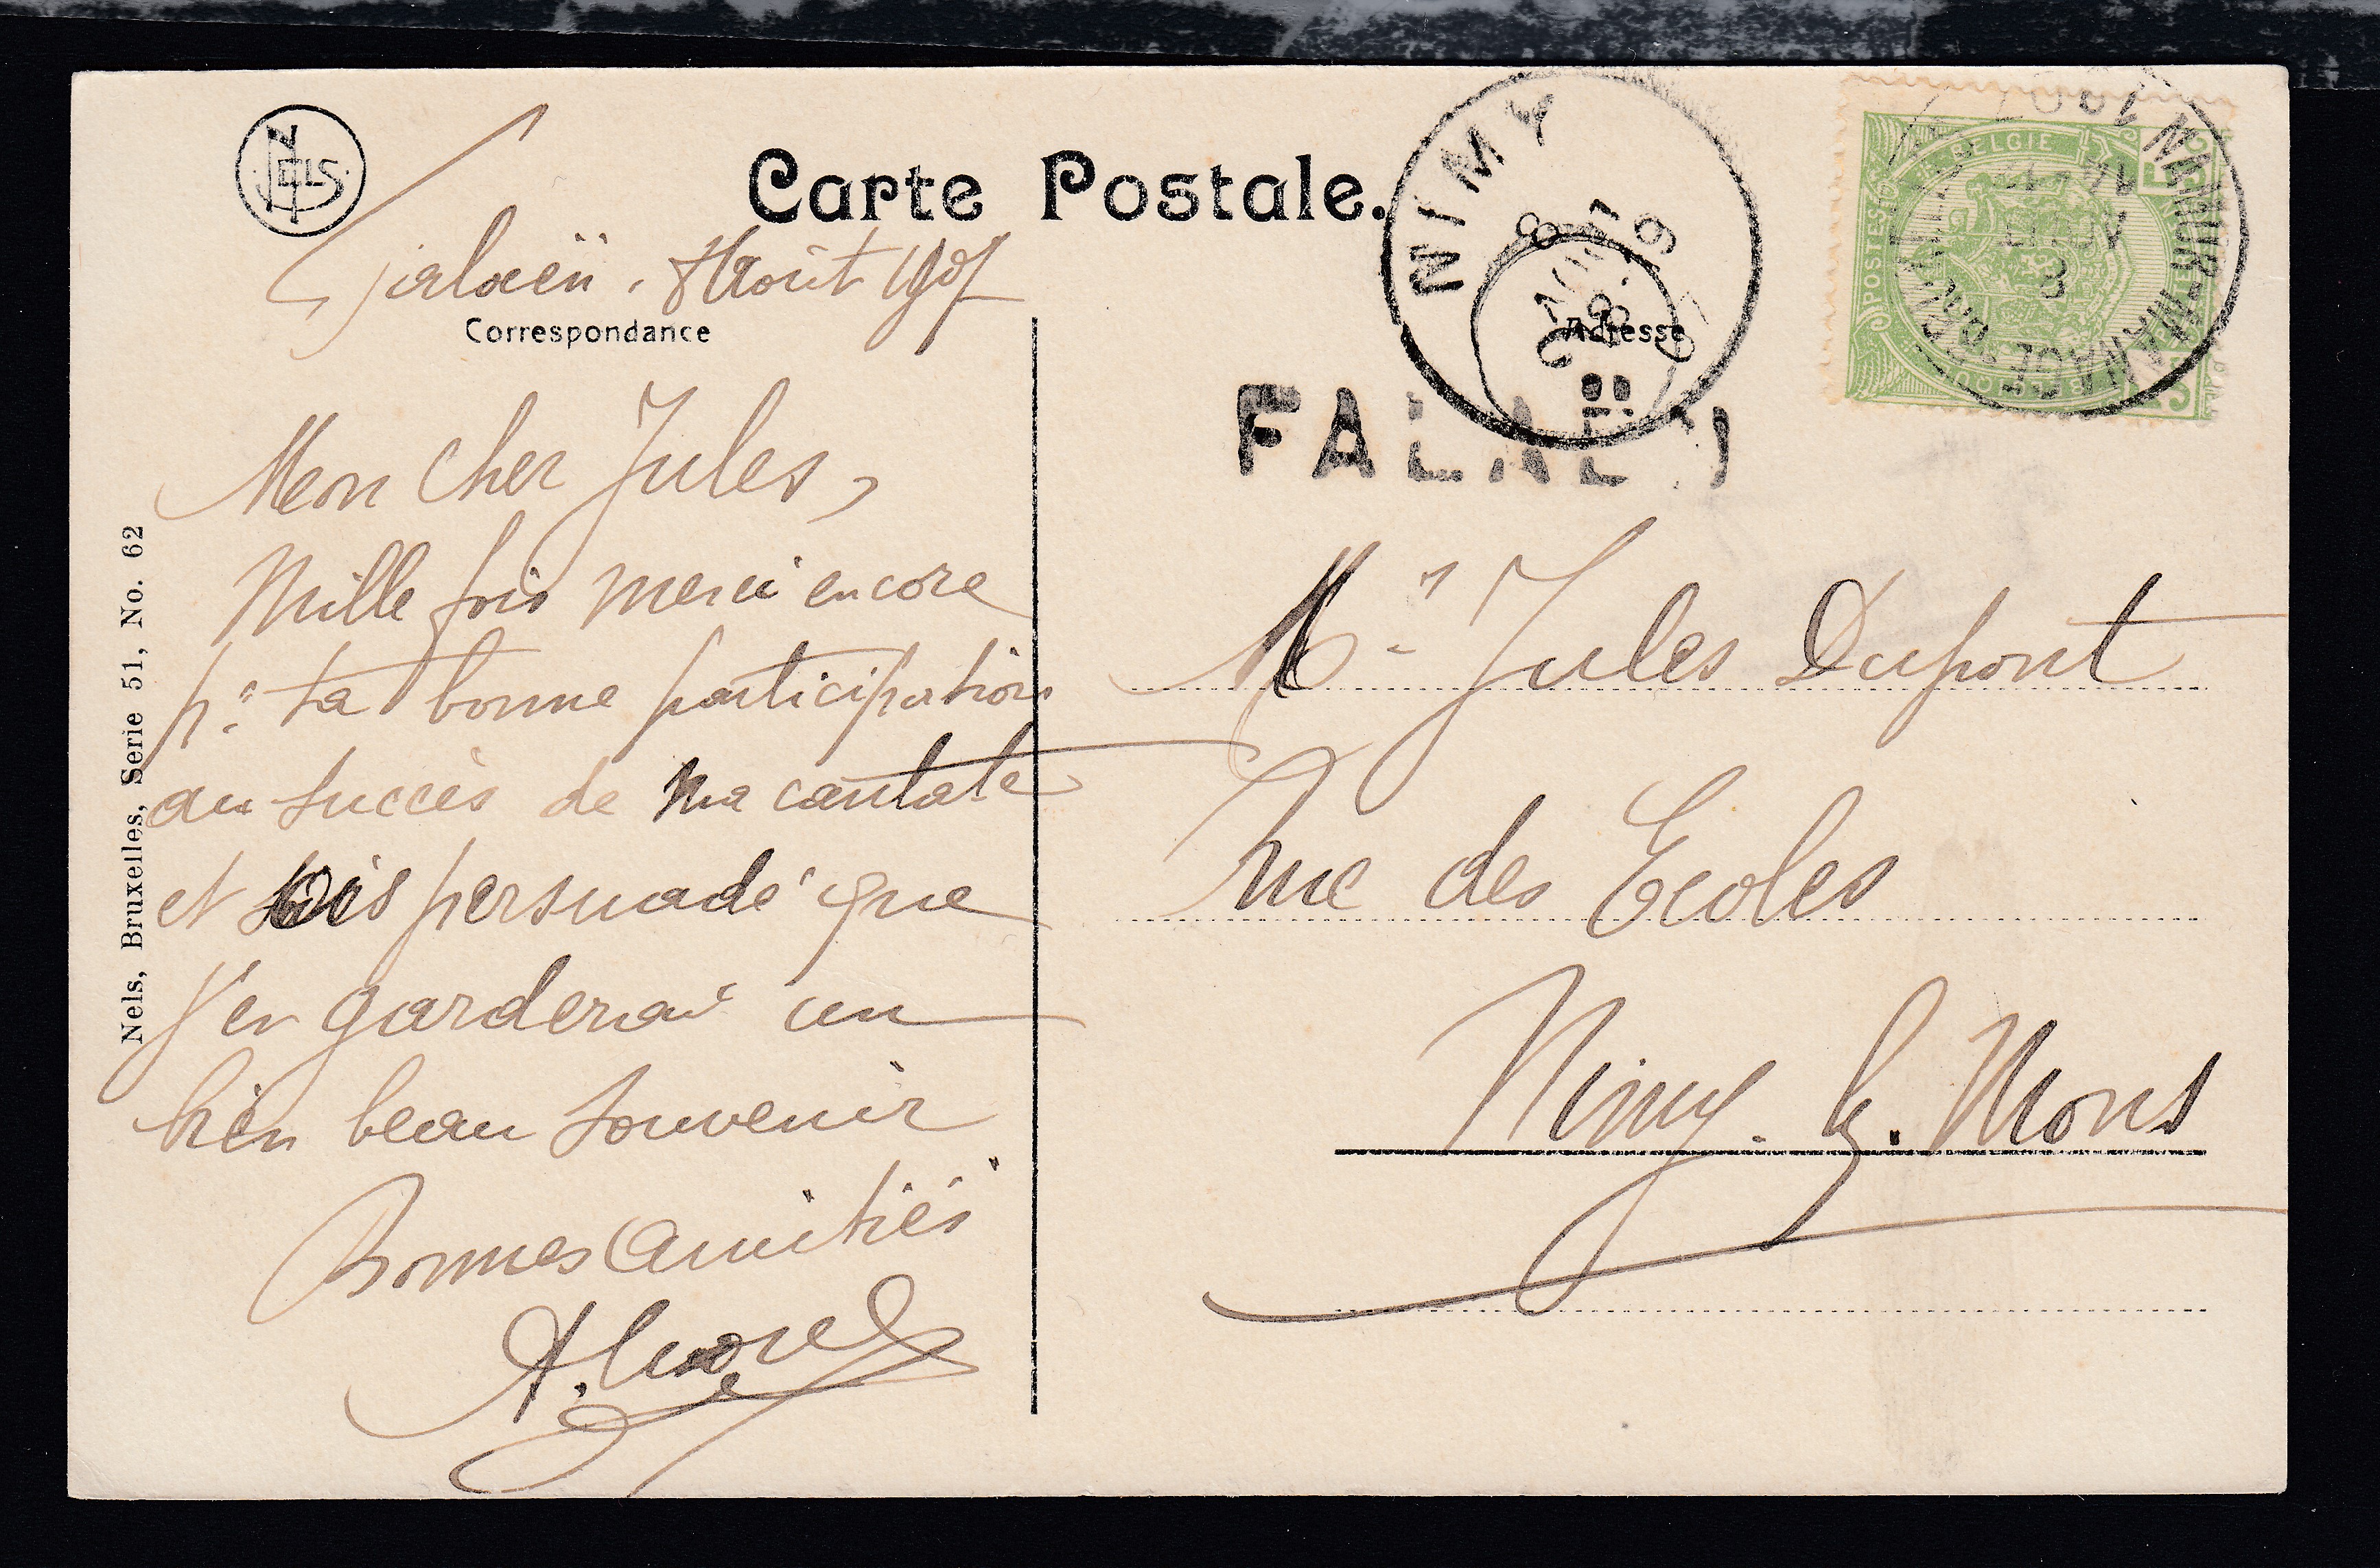 NELS
Carte Postale.
Falaën, 8 Août 1907
Correspondance
Adresse
Mon cher Jules,
Mille fois merci encore
pr ta bonne participation
au succès de ma cantate
et sois persuadé que
j'en garderai un
bien beau souvenir
Bonnes amitiés
Nels, Bruxelles, Serie 51, No. 62
NIMY
FALAEN
POSTES BELGIE
NAMUR-MANAGE
8
AOUT
1907
Mr Jules Dupont
rue des Ecoles
Nimy. lz. Mons